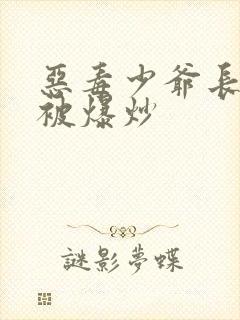 惡毒少爺長
被爆炒
謎影夢蝶